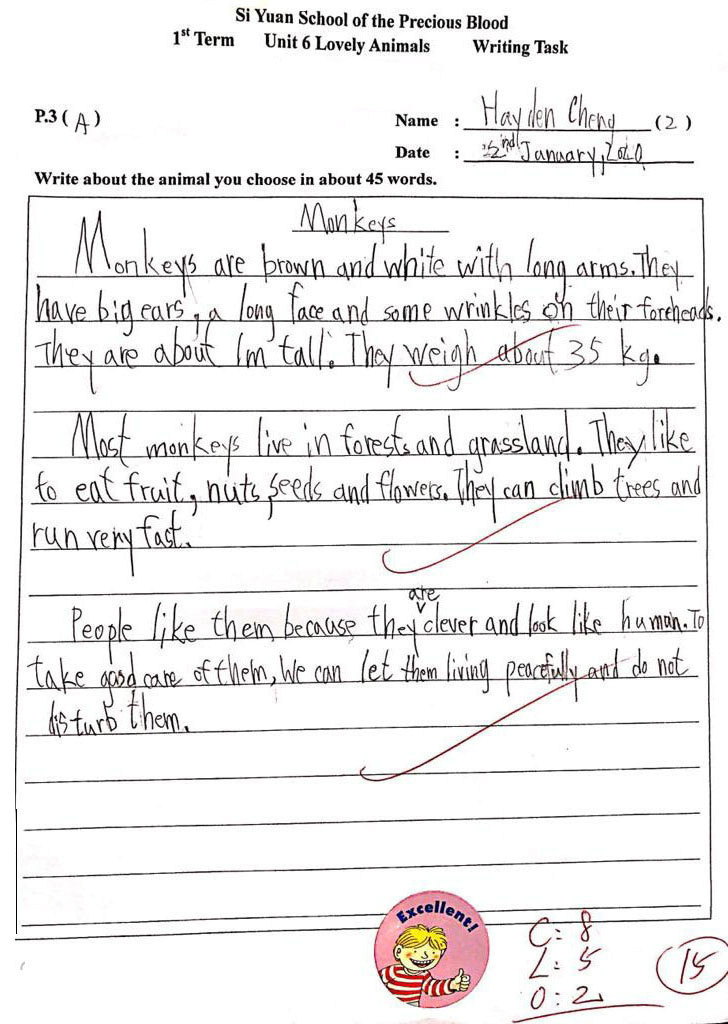 Si Yuan School of the Precious Blood
1st Term Unit 6 Lovely Animals Writing Task
P.3 ( A ) Name : Hayden Cheng ( 2 )
Date : 2nd January, 2020
Write about the animal you choose in about 45 words.
Monkeys
Monkeys are brown and white with long arms. They
have big ears, a long face and some wrinkles on their foreheads.
They are about 1m tall. They weigh about 35 kg.
Most monkeys live in forests and grassland. They like
to eat fruit, nuts, seeds and flowers. They can climb trees and
run very fast.
are
People like them because they clever and look like human. To
take good care of them, We can let them living peacefully and do not
disturb them.
Excellent!
C: 8
L: 5
O: 2
15